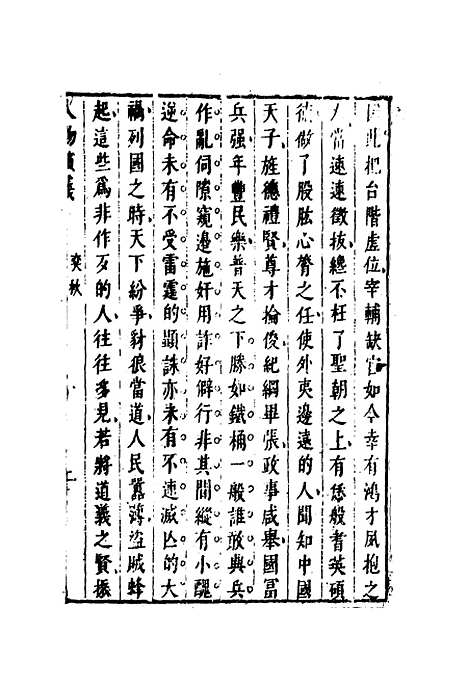 因此把台階虚位宰輔缺官如今幸有鴻才夙抱之
人當速速徵拔總不枉了聖朝之上有恁般耆英碩
德做了股肱心膂之任使外夷邊遠的人聞知中國
天子旌德禮賢尊才掄俊紀綱畢張政事咸舉國富
兵强年豐民樂普天之下勝如鐵桶一般誰敢興兵
作亂伺隙窺邊施奸用詐好僻行非其間縱有小醜
逆命未有不受雷霆的顯誅亦未有不速滅亾的大
禍列國之時天下紛爭豺狼當道人民嚚薄盜賊蜂
起這些爲非作歹的人往往多見若將道義之賢振
人物演義
奕秋